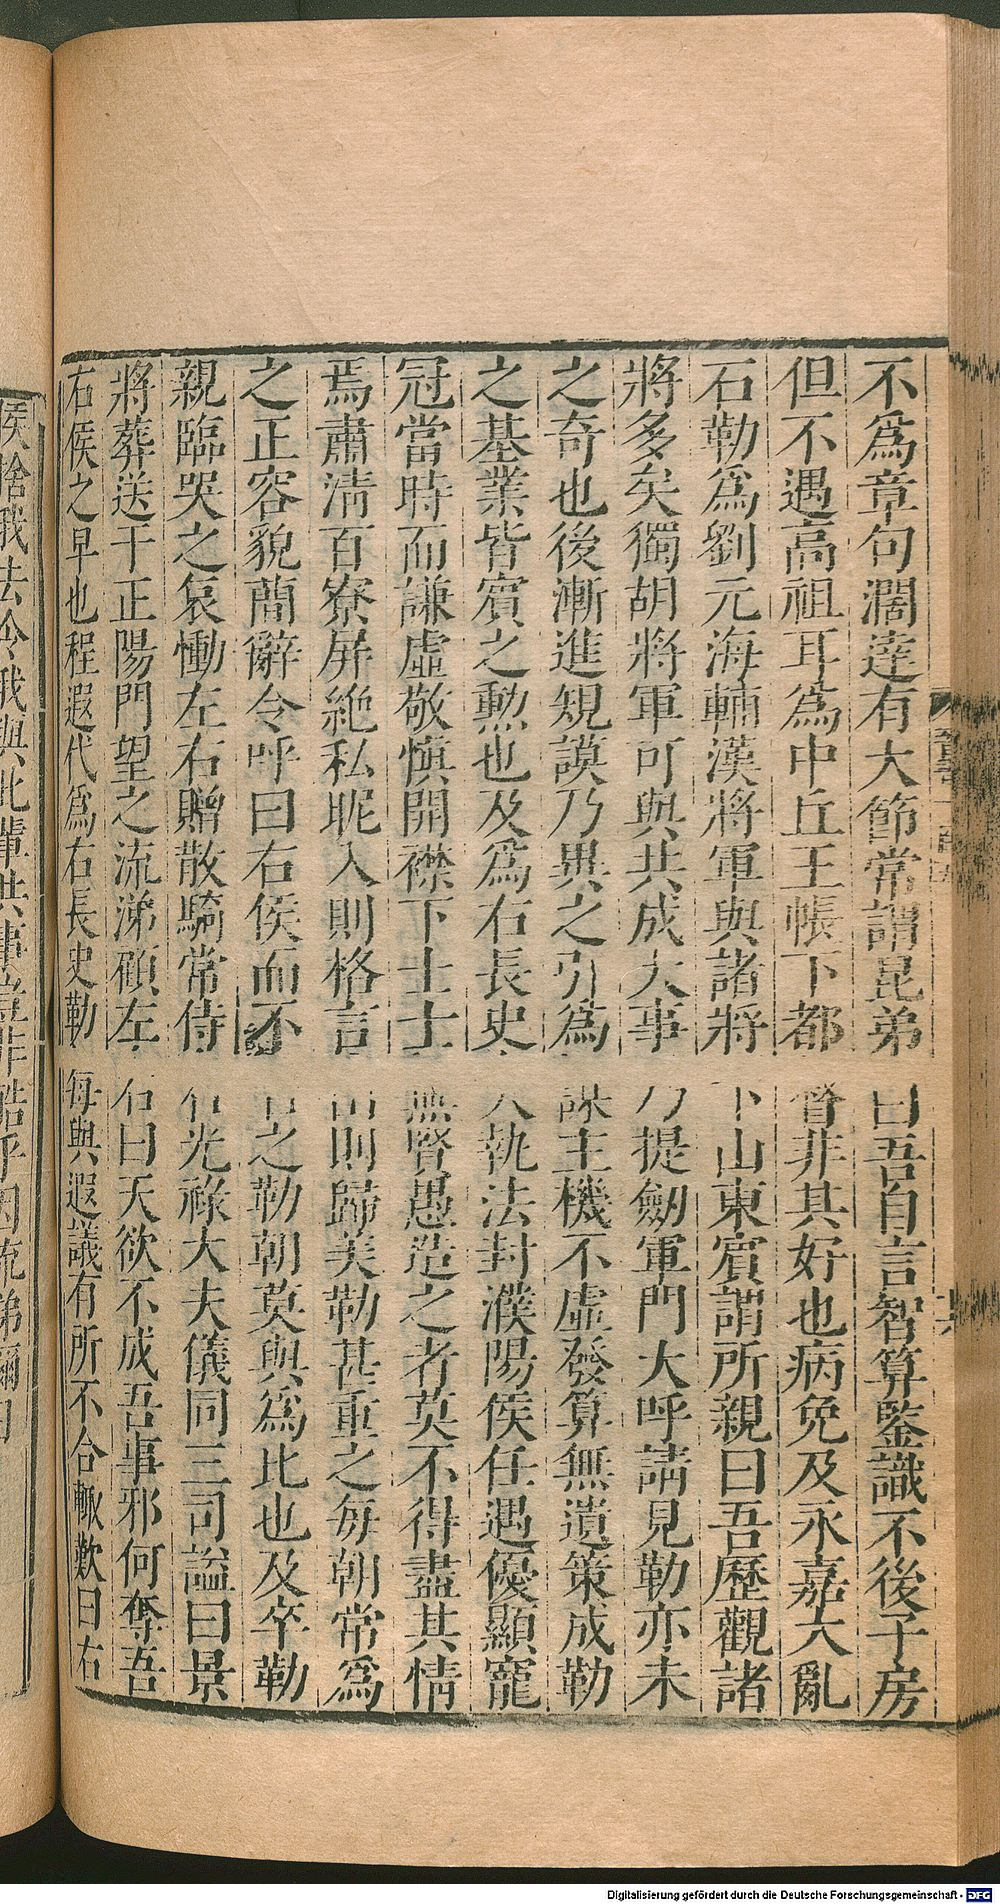 不爲章句濶達有大節常謂昆弟曰吾自言智算鑒識不後子房
但不遇高祖耳爲中丘王帳下都督非其好也病免及永嘉大亂
石勒爲劉元海輔漢將軍與諸將下山東賓謂所親曰吾歷觀諸
將多矣獨胡將軍可與共成大事乃提劒軍門大呼請見勒亦未
之奇也後漸進規謨乃異之引爲謀主機不虛發算無遺策成勒
之基業皆賓之勲也及爲右長史大執法封濮陽侯任遇優顯寵
冠當時而謙虛敬慎開襟下士士無賢愚造之者莫不得盡其情
焉肅淸百寮屏絶私昵入則格言出則歸美勒甚重之每朝常爲
之正容貌簡辭令呼曰右侯而不名之勒朝莫與爲比也及卒勒
親臨哭之哀慟左右贈散騎常侍右光祿大夫儀同三司謚曰景
將葬送于正陽門望之流涕顧左右曰天欲不成吾事邪何奪吾
右侯之早也程遐代爲右長史勒每與遐議有所不合輒歎曰右
侯捨我去令我與此輩共事豈非酷乎因流涕彌日
Digitalisierung gefördert durch die Deutsche Forschungsgemeinschaft - DFG